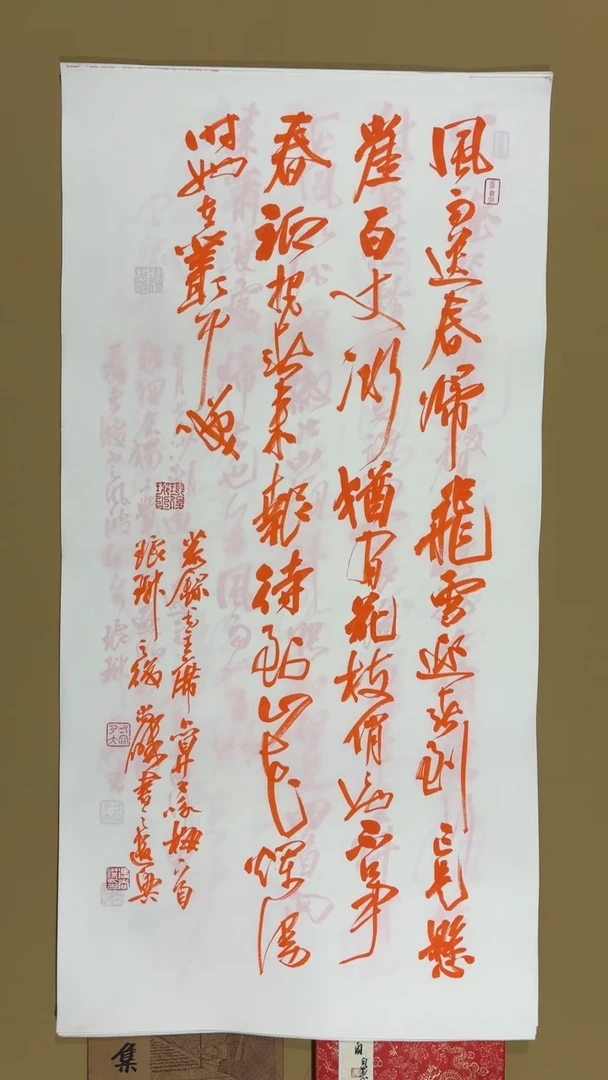 風雨送春歸飛雪迎春到已是懸
崖百丈冰猶有花枝俏也不爭
春祇把春來報待到山花爛漫
時她在叢中笑
恭錄毛主席卜算子咏梅一首
琅琊之後書之遣興
集